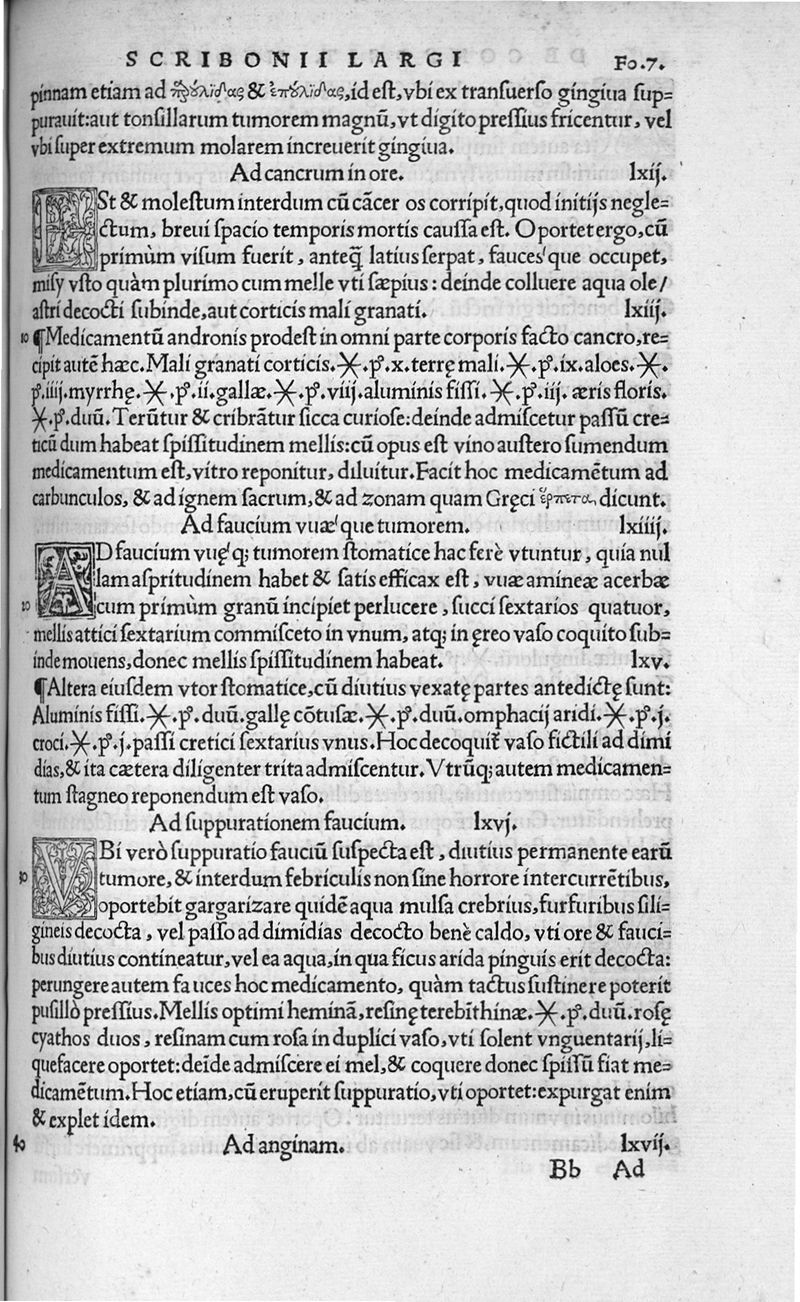 SCRIBONII LARGI Fo.7.
pinnam etiam ad παρουλίδας & ἐπουλίδας, id est, vbi ex transuerso gingiua sup=
purauit: aut tonsillarum tumorem magnū, vt digito pressius fricentur, vel
vbi super extremum molarem increuerit gingiua.
Ad cancrum in ore. lxij.
ESt & molestum interdum cū cācer os corripit, quod initijs negle=
ctum, breui spacio temporis mortis caussa est. Oportet ergo, cū
primùm visum fuerit, anteq̄ latius serpat, fauces'que occupet,
misy vsto quàm plurimo cum melle vti sæpius: deinde colluere aqua ole/
astri decocti subinde, aut corticis mali granati. lxiij.
10 ¶Medicamentū andronis prodest in omni parte corporis facto cancro, re=
cipit autē hæc. Mali granati corticis. Ӿ. p̊. x. terrę mali. Ӿ. p̊. ix. aloes. Ӿ.
p̊. iiij. myrrhę. Ӿ. p̊. ii. gallæ. Ӿ. p̊. viij. aluminis fissi. Ӿ. p̊. iij. æris floris.
Ӿ. p̊. duū. Terūtur & cribrātur sicca curiose: deinde admiscetur passū cre=
ticū dum habeat spissitudinem mellis: cū opus est vino austero sumendum
medicamentum est, vitro reponitur, diluitur. Facit hoc medicamētum ad
carbunculos, & ad ignem sacrum, & ad zonam quam Gręci ἕρπητα, dicunt.
Ad faucium vuæ'que tumorem. lxiiij.
AD faucium vuę'q; tumorem stomatice hac ferè vtuntur, quia nul
lam aspritudinem habet & satis efficax est, vuæ amineæ acerbæ
20 cum primùm granū incipiet perlucere, succi sextarios quatuor,
mellis attici sextarium commisceto in vnum, atq; in ęreo vaso coquito sub=
inde mouens, donec mellis spissitudinem habeat. lxv.
¶Altera eiusdem vtor stomatice, cū diutius vexatę partes antedictę sunt:
Aluminis fissi. Ӿ. p̊. duū. gallę cōtusæ. Ӿ. p̊. duū. omphacij aridi. Ӿ. p̊. j.
croci. Ӿ. p̊. j. passi cretici sextarius vnus. Hoc decoquit̄ vaso fictili ad dimi
dias, & ita cætera diligenter trita admiscentur. Vtrūq; autem medicamen=
tum stagneo reponendum est vaso.
Ad suppurationem faucium. lxvj.
VBi verò suppuratio fauciū suspecta est, diutius permanente earū
30 tumore, & interdum febriculis non sine horrore intercurrētibus,
oportebit gargarizare quidē aqua mulsa crebrius, furfuribus sili=
gineis decocta, vel passo ad dimidias decocto benè caldo, vti ore & fauci=
bus diutius contineatur, vel ea aqua, in qua ficus arida pinguis erit decocta:
perungere autem fauces hoc medicamento, quàm tactus sustinere poterit
pusillò pressius. Mellis optimi heminā, resinę terebīthinæ. Ӿ. p̊. duū. rosę
cyathos duos, resinam cum rosa in duplici vaso, vti solent vnguentarij, li=
quefacere oportet: deīde admiscere ei mel, & coquere donec spissū fiat me=
dicamētum. Hoc etiam, cū eruperit suppuratio, vti oportet: expurgat enim
& explet idem.
40 Ad anginam. lxvij.
Bb Ad